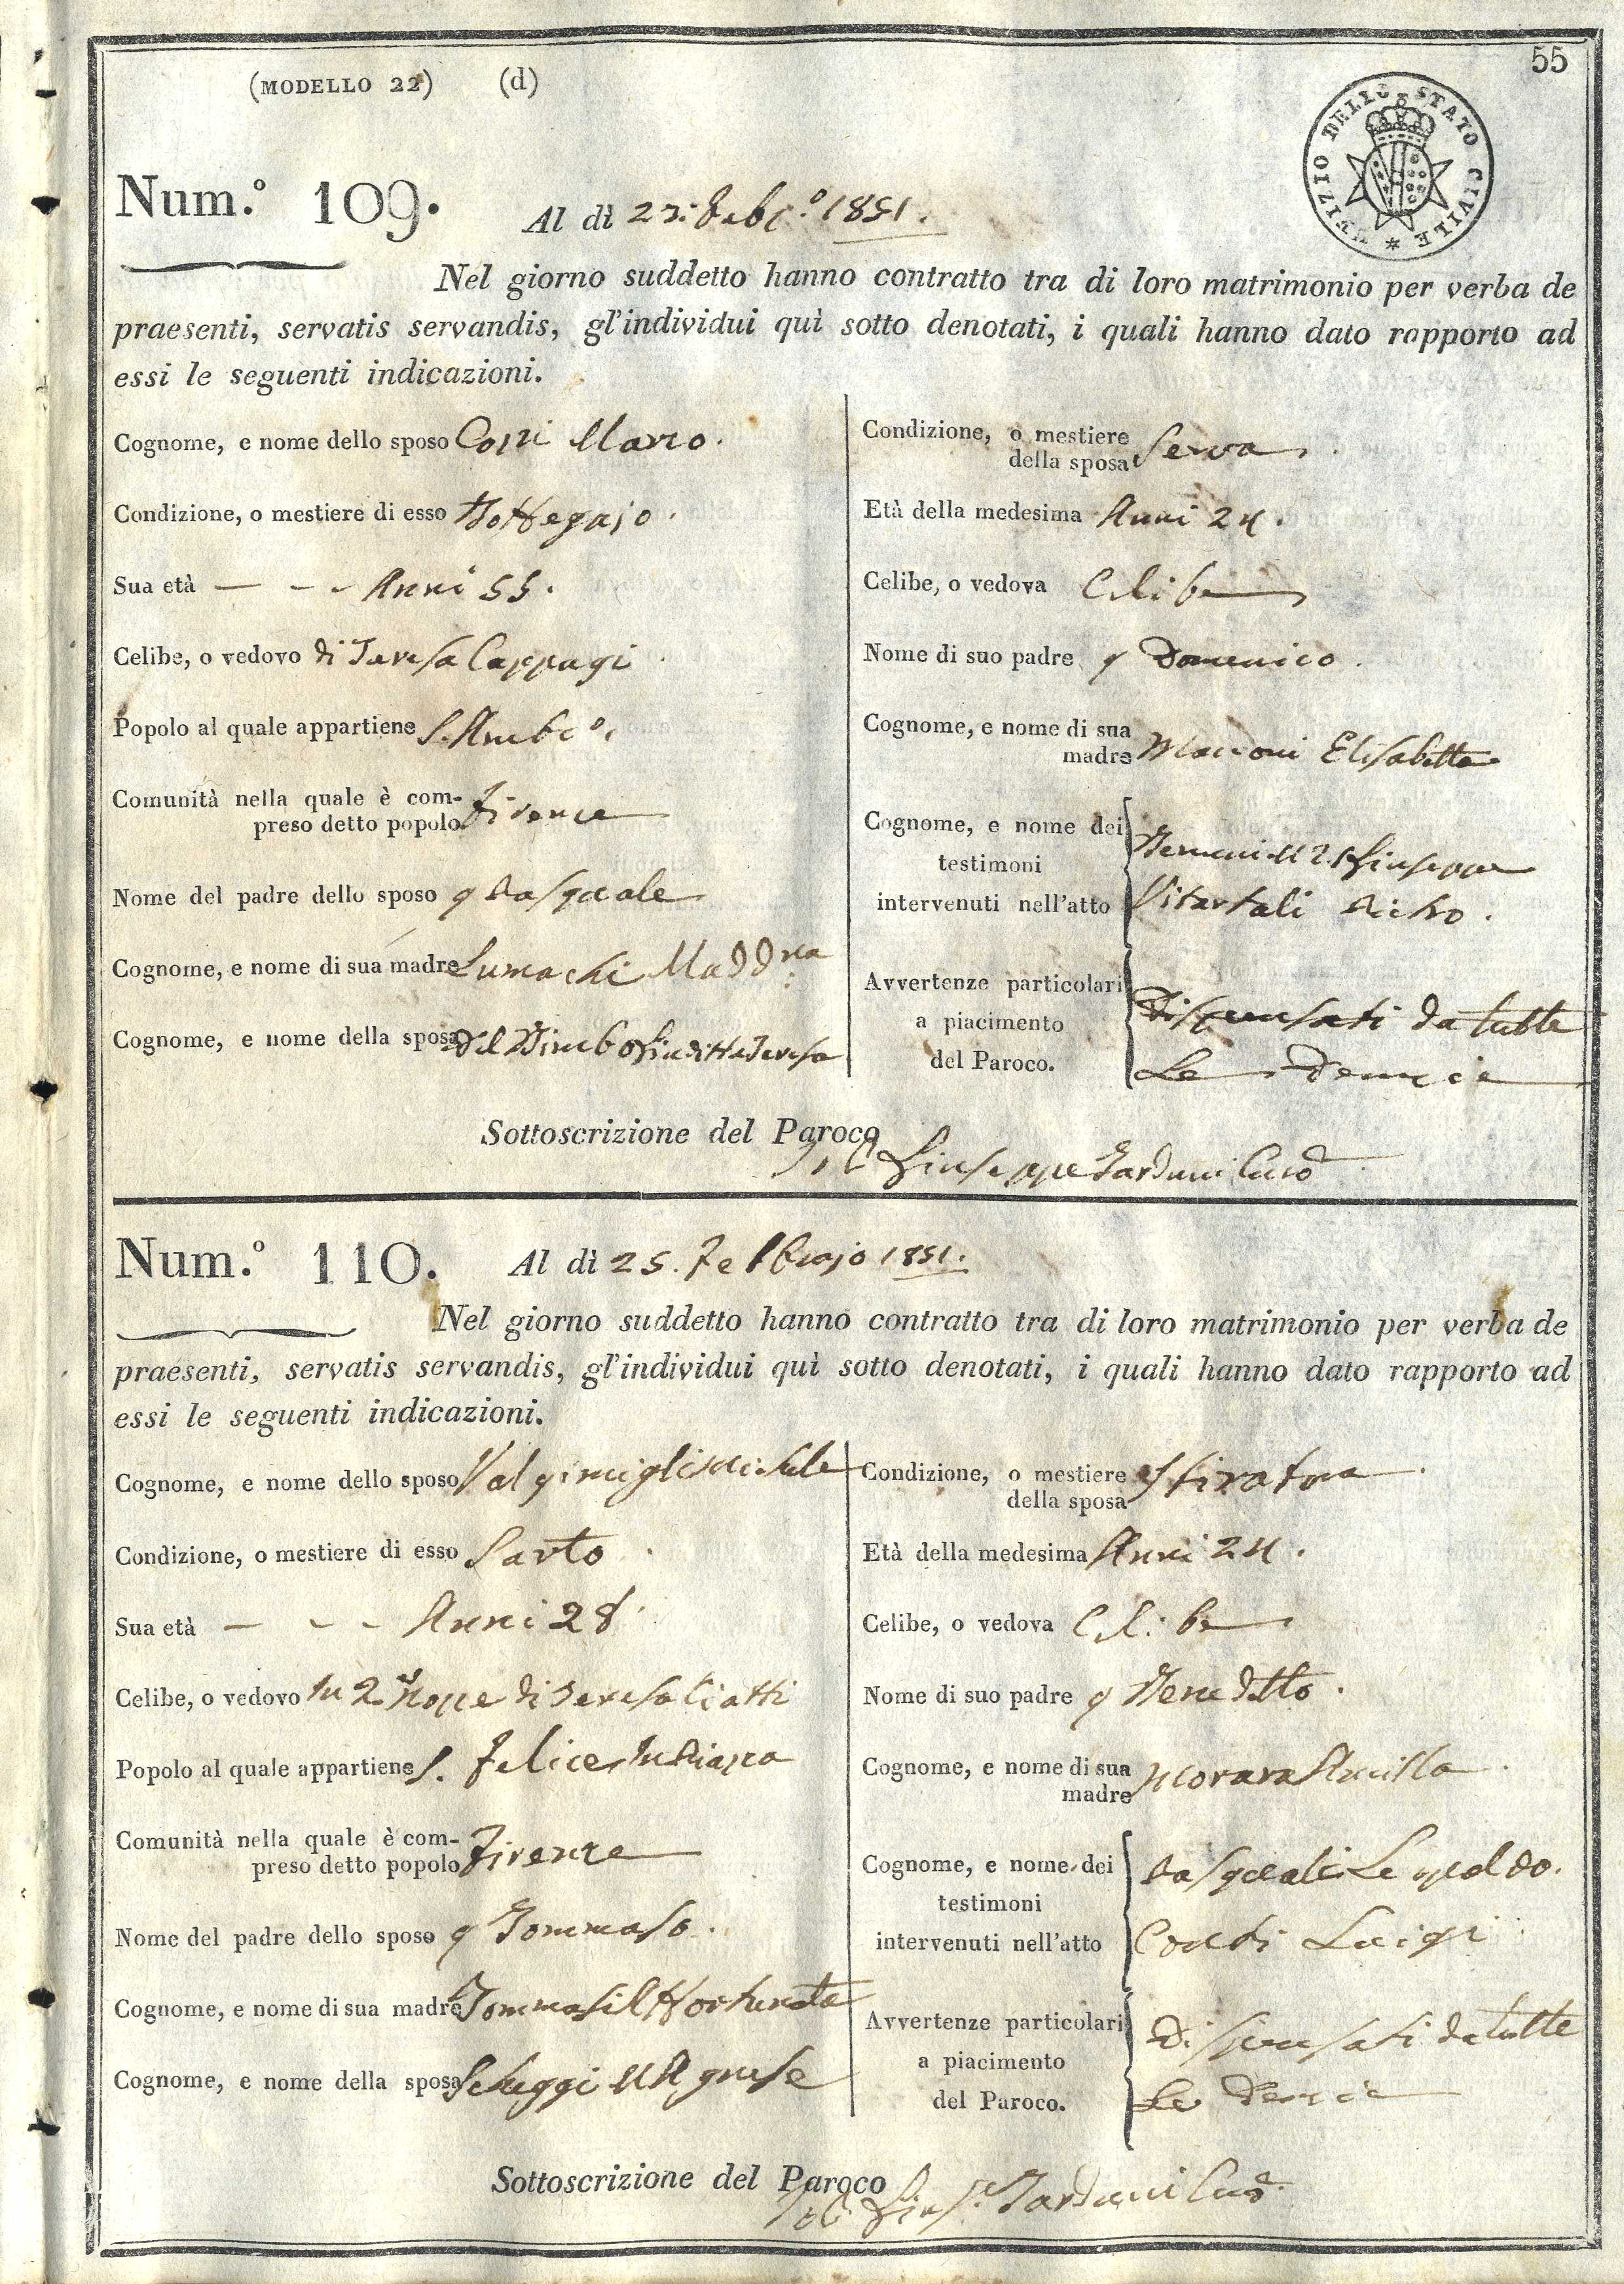 55
(MODELLO 22) (d)
UFIZIO DELLO STATO CIVILE
Num.º 109. Al dì Febb.º 1851.
Nel giorno suddetto hanno contratto tra di loro matrimonio per verba de
praesenti, servatis servandis, gl'individui quì sotto denotati, i quali hanno dato rapporto ad
essi le seguenti indicazioni.
Cognome, e nome dello sposo
Condizione, o mestiere di esso Bottegajo.
Sua età — - - Anni 55.
Celibe, o vedovo di Teresa Cappugi
Popolo al quale appartiene S. Amb.º
Comunità nella quale è com-
preso detto popolo Firenze
Nome del padre dello sposo q Pasquale
Cognome, e nome di sua madre Lumachi Madd.na
Cognome, e nome della sposa Del Bimbo Giuditta Teresa
Condizione, o mestiere
della sposa Serva
Età della medesima Anni 24.
Celibe, o vedova Celibe
Nome di suo padre q Domenico.
Cognome, e nome di sua
madre Elisabetta
Cognome, e nome dei
testimoni
intervenuti nell'atto
Giuseppe
Pietro.
Avvertenze particolari
a piacimento
del Paroco.
Dispensati da tutte
Le Denzie
Sottoscrizione del Paroco
Giuseppe Tarduni Curº
Num.º 110. Al dì 25. Febbrajo 1851.
Nel giorno suddetto hanno contratto tra di loro matrimonio per verba de
praesenti, servatis servandis, gl'individui quì sotto denotati, i quali hanno dato rapporto ad
essi le seguenti indicazioni.
Cognome, e nome dello sposo Valgimigli
Condizione, o mestiere di esso Sarto
Sua età — - - Anni 28
Celibe, o vedovo In 2.e Nozze di Teresa Ciatti
Popolo al quale appartiene S. Felice In Piazza
Comunità nella quale è com-
preso detto popolo Firenze
Nome del padre dello sposo q Tommaso.
Cognome, e nome di sua madre Tommasi
Cognome, e nome della sposa Scheggi M Agnese
Condizione, o mestiere
della sposa Stiratora
Età della medesima Anni 24.
Celibe, o vedova Celibe
Nome di suo padre q Benedetto.
Cognome, e nome di sua
madre Morara
Cognome, e nome dei
testimoni
intervenuti nell'atto
Pasquali Leopoldo.
Conti Luigi
Avvertenze particolari
a piacimento
del Paroco.
Dispensati da tutte
Le Denzie
Sottoscrizione del Paroco
Gius.e Tarduni Curº